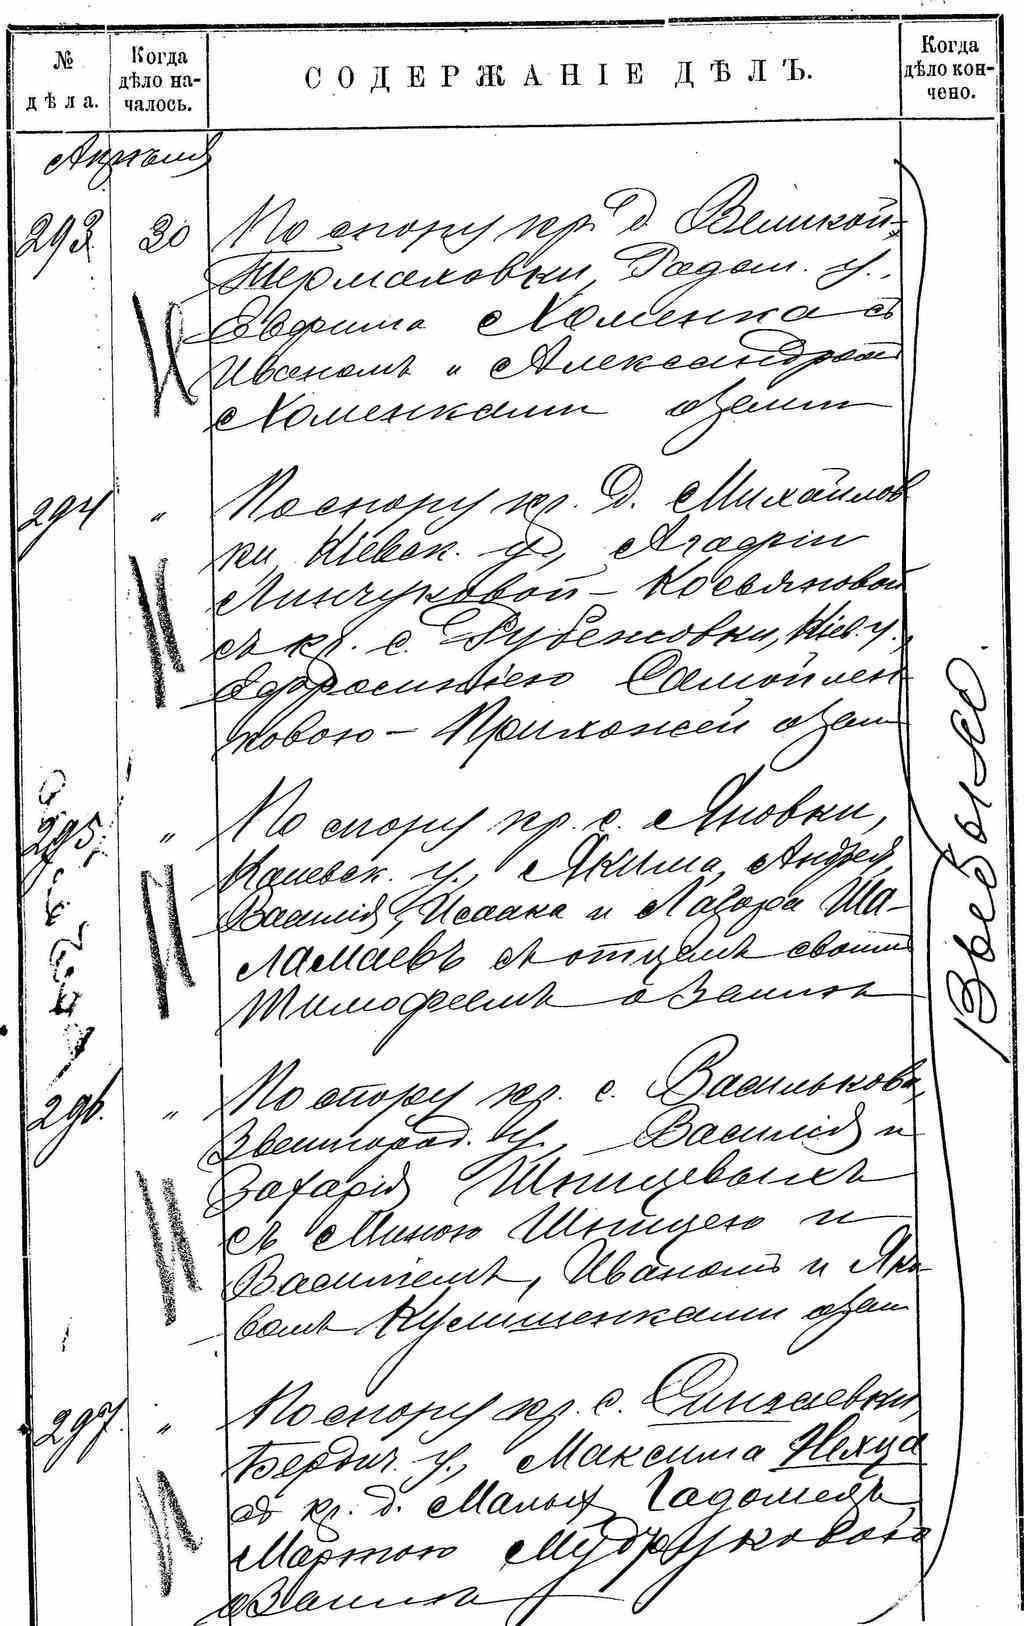 № дѣла.
Когда дѣло началось.
СОДЕРЖАНІЕ ДѢЛЪ.
Когда дѣло кончено.
Апрѣля
293 30 По спору кр. д. Великой-
Термаховки, Радом. у.,
Евфима Хоменка съ
Иваномъ и Александромъ
Хоменками о земли
294 " По спору кр. д. Михайлов
ки Кіевск. у., Агафіи
Линчуковой - Косьяновой
съ кр. с. Рубежовки, Кіев. у.,
Ефросиніею Самойлен
ковою - Прихожей о зем
295 " По спору кр. с. Яновки,
Каневск. у., Якима, Андрея,
Василія, Исаака и Лазора Ша-
ламаевъ съ отцемъ своимъ
Тимофеемъ о землѣ
296. " По спору кр. с. Василькова,
Звенигород. у., Василія и
Захарія Шпицевыхъ
съ Миною Шпицею и
Василіемъ, Иваномъ и Яко
вомъ Кулишенками о зем
297. " По спору кр. с. Сингаевки,
Бердич. у., Максима Нехца
съ кр. д. Малых Гадомець
Марѳою Мудрукововою
о землѣ